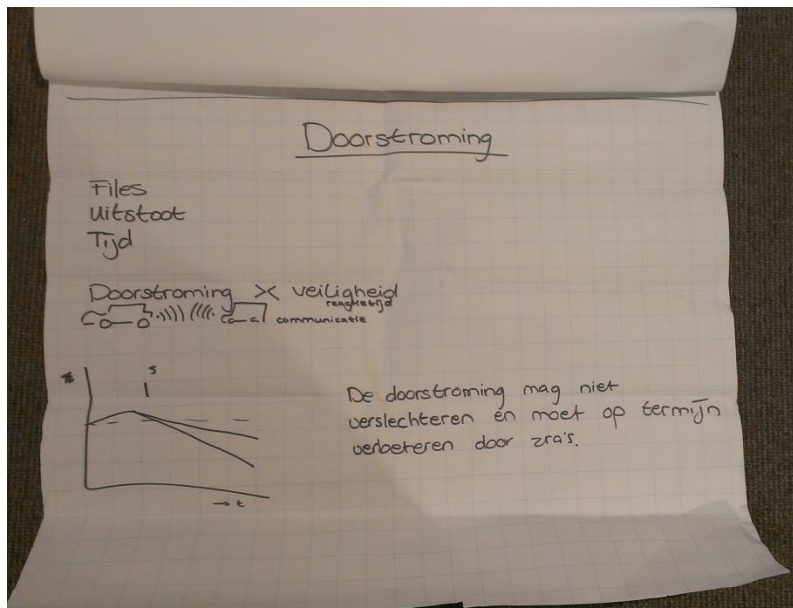 Doorstroming
Files
Uitstoot
Tijd
Doorstroming >< veiligheid
reactietijd
communicatie
s
→ t
De doorstroming mag niet
verslechteren én moet op termijn
verbeteren door zra's.